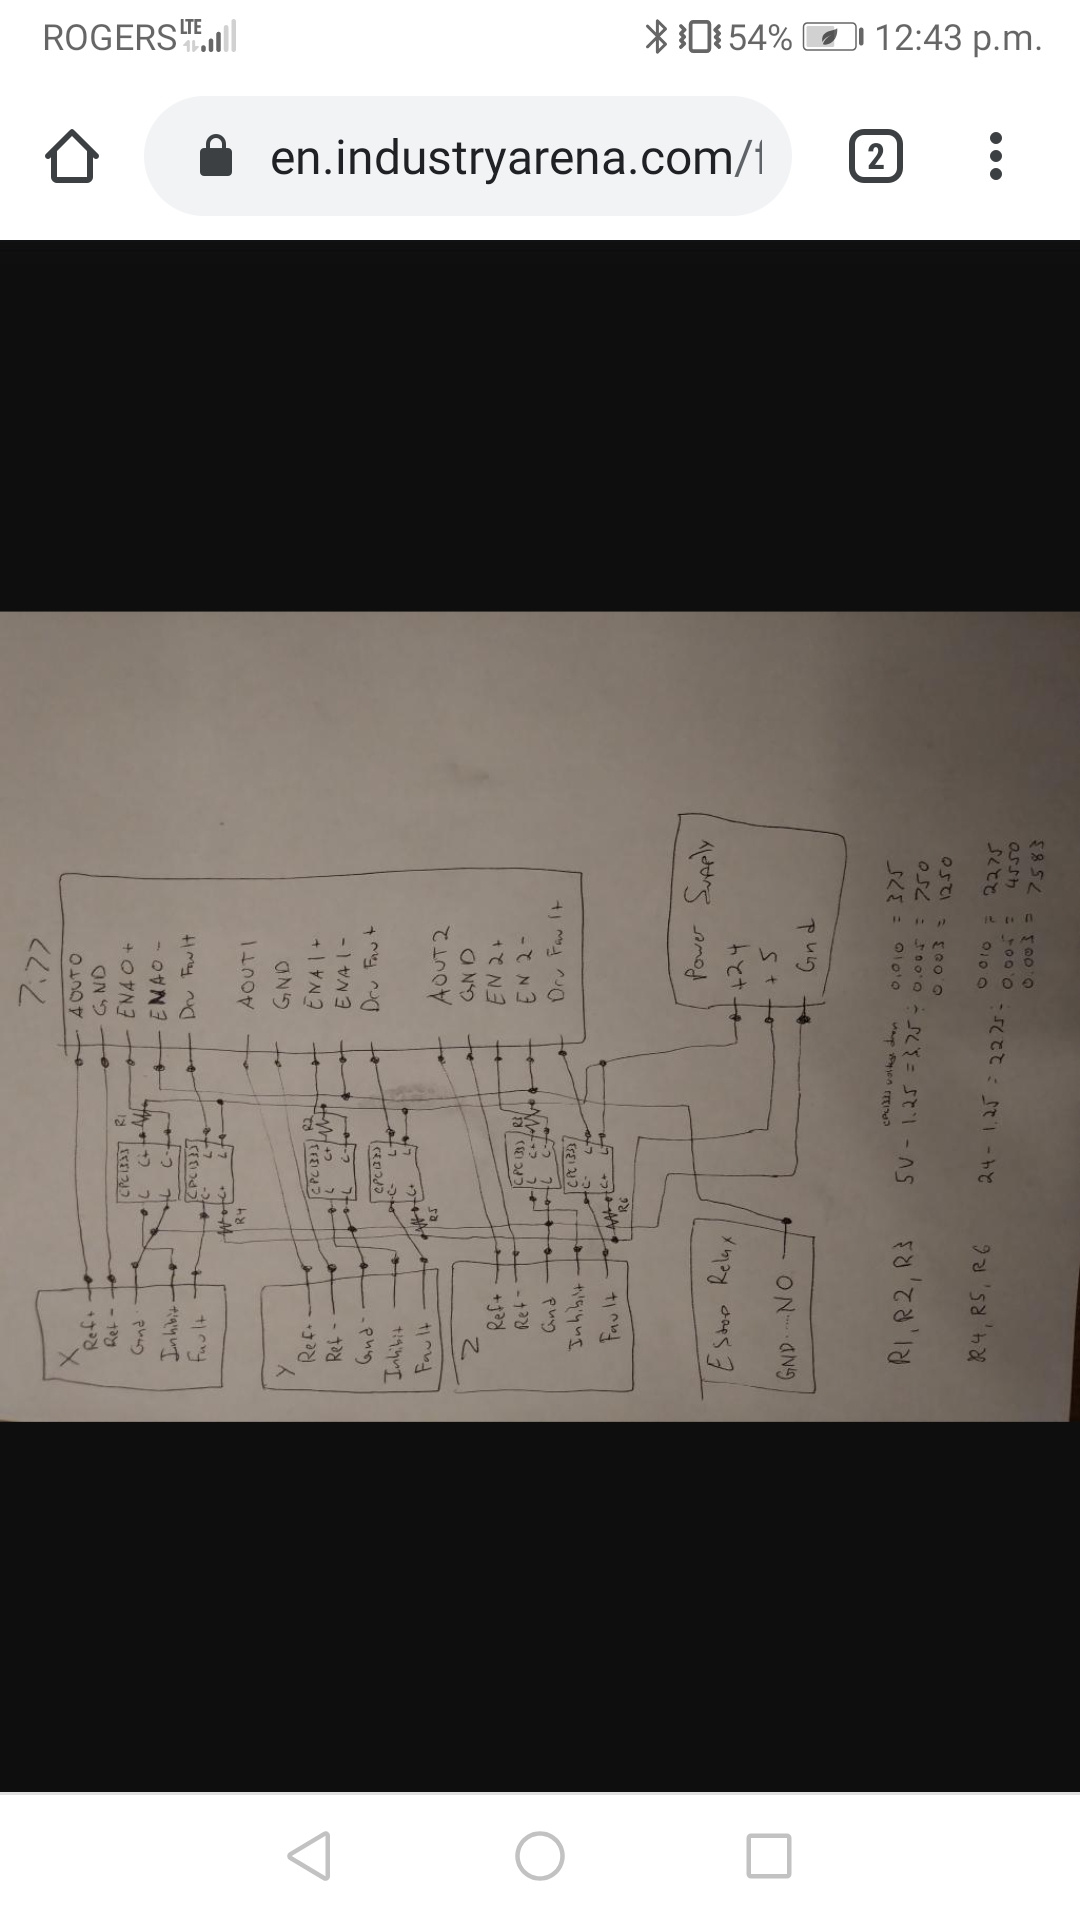 ROGERS LTE
54% 12:43 p.m.
en.industryarena.com/f
2
7.77
AOUT0
GND
ENA0+
ENA0-
Drv Fault
AOUT1
GND
ENA1+
ENA1-
Drv Fault
AOUT2
GND
EN2+
EN2-
Drv Fault
R1
CPC1333
L C+
L C-
CPC1333
C- L
C+ L
R4
R2
CPC1333
L C+
L C-
CPC1333
C- L
C+ L
R5
R3
CPC1333
L C+
L C-
CPC1333
C- L
C+ L
R6
X
Ref+
Ref-
Gnd
Inhibit
Fault
Y
Ref+
Ref-
Gnd-
Inhibit
Fault
Z
Ref+
Ref-
Gnd
Inhibit
Fault
Power Supply
+24
+5
Gnd
Estop Relay
GND.....NO
CPC1333 voltage drop
R1, R2, R3 5V - 1.25 = 3.75 ÷ 0.010 = 375
0.005 = 750
0.003 = 1250
R4, R5, R6 24 - 1.25 = 22.75 ÷ 0.010 = 2275
0.005 = 4550
0.003 = 7583